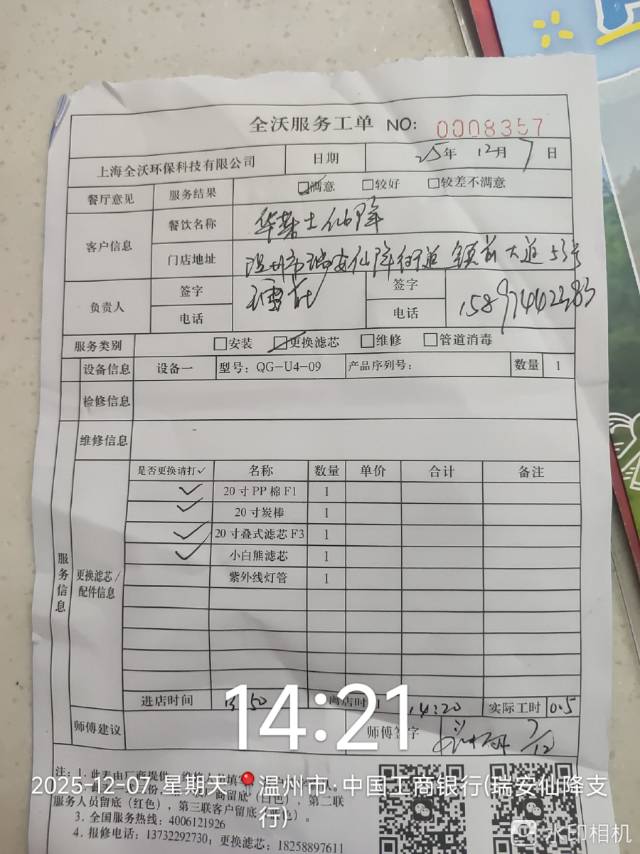 全沃服务工单 NO: 0008357
上海全沃环保科技有限公司 日期 25年 12月 7日
餐厅意见 服务结果 满意 较好 较差不满意
客户信息 餐饮名称 华莱士仙降
门店地址 温州市瑞安仙降街道 镇前大道 53号
负责人 签字 签字
电话 电话
服务类别 安装 更换滤芯 维修 管道消毒
设备信息 设备一 型号: QG-U4-09 产品序列号: 数量 1
检修信息
维修信息
服务信息
更换滤芯/配件信息
是否更换请打✓ 名称 数量 单价 合计 备注
✓ 20寸PP棉F1 1
✓ 20寸炭棒 1
✓ 20寸叠式滤芯F3 1
✓ 小白熊滤芯 1
紫外线灯管 1
进店时间 13:50 离店时间 14:20 实际工时 0.5
师傅建议 师傅签字 7/12
14:21
2025-12-07 星期天 温州市·中国工商银行(瑞安仙降支行)
服务人员留底(红色),第三联客户留底
3. 全国服务热线: 4006121926
4. 报修电话: 13732292730; 更换滤芯: 18258897611
水印相机